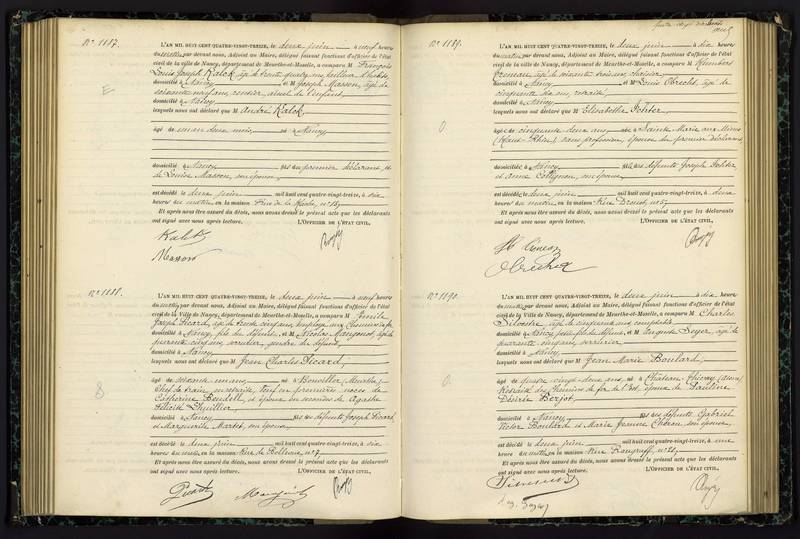 N° 1187.
L'AN MIL HUIT CENT QUATRE-VINGT-TREIZE, le deux juin à neuf heures
du matin par devant nous, Adjoint au Maire, délégué faisant fonctions d'officier de l'état
civil de la ville de Nancy, département de Meurthe-et-Moselle, a comparu M François
Louis Joseph Kalck, âgé de trente quatre ans, tailleur d'habits,
domicilié à Nancy et M Joseph Masson, âgé de
soixante ans, aïeul de l'enfant,
domicilié à Nancy
lesquels nous ont déclaré que M André Kalck,
âgé de un an deux mois, né à Nancy
domicilié à Nancy fils du premier déclarant et
de Louise Masson, son épouse,
est décédé le deux juin mil huit cent quatre-vingt-treize, à six
heures du matin, en la maison Rue de la n° 18,
Et après nous être assuré du décès, nous avons dressé le présent acte que les déclarants
ont signé avec nous après lecture. L'OFFICIER DE L'ÉTAT CIVIL,
Kalck
Masson
N° 1188.
L'AN MIL HUIT CENT QUATRE-VINGT-TREIZE, le deux juin à neuf heures
du matin par devant nous, Adjoint au Maire, délégué faisant fonctions d'officier de l'état
civil de la Ville de Nancy, département de Meurthe-et-Moselle, a comparu M Emile
Joseph Picard, âgé de trente cinq ans, employé aux Chemins de fer
domicilié à Nancy, fils du défunt, et M Nicolas Mangenot, âgé de
quarante cinq ans, gendre du défunt,
domicilié à Nancy
lesquels nous ont déclaré que M Jean Charles Picard,
âgé de soixante un ans né à Bonviller (Meurthe)
Chef de train en retraite, veuf en premières noces de
Catherine Bendell, et époux en secondes de Agathe
Félicité Lhuillier,
domicilié à Nancy fils des défunts Joseph Picard
et Marguerite Martet, son épouse,
est décédé le deux juin mil huit cent quatre-vingt-treize, à six
heures du matin, en la maison Rue de n° 7,
Et après nous être assuré du décès, nous avons dressé le présent acte que les déclarants
ont signé avec nous après lecture. L'OFFICIER DE L'ÉTAT CIVIL,
Picard
N° 1189.
L'AN MIL HUIT CENT QUATRE-VINGT-TREIZE, le deux juin à dix heures
du matin par devant nous, Adjoint au Maire, délégué faisant fonctions d'officier de l'état
civil de la ville de Nancy, département de Meurthe-et-Moselle, a comparu M Humbert
âgé de soixante trois ans,
domicilié à Nancy et M Louis Obrecht, âgé de
cinquante six ans, retraité,
domicilié à Nancy
lesquels nous ont déclaré que M Elisabethe
âgée de cinquante deux ans, née à Sainte Marie aux Mines
(Haut-Rhin) sans profession, épouse du premier déclarant
domiciliée à Nancy fille des défunts Joseph
et Anne Collignon, son épouse,
est décédée le deux juin mil huit cent quatre-vingt-treize, à deux
heures du matin, en la maison Rue Drouot, n° 5,
Et après nous être assuré du décès, nous avons dressé le présent acte que les déclarants
ont signé avec nous après lecture. L'OFFICIER DE L'ÉTAT CIVIL,
Obrecht
N° 1190.
L'AN MIL HUIT CENT QUATRE-VINGT-TREIZE, le deux juin à dix heures
du matin par devant nous, Adjoint au Maire, délégué faisant fonctions d'officier de l'état
civil de la Ville de Nancy, département de Meurthe-et-Moselle, a comparu M Charles
Silvestre, âgé de cinquante ans, comptable
domicilié à Nancy et M Auguste Goyer, âgé de
quarante cinq ans, serrurier
domicilié à Nancy
lesquels nous ont déclaré que M Jean Marie Boulard,
âgé de quatre vingt deux ans, né à Château-Thierry (Aisne)
Retraité des Chemins de fer de l'Est, époux de Pauline
Désirée Berjot
domicilié à Nancy fils des défunts Gabriel
Victor Boulard et Marie Jeanne Chéron, son épouse,
est décédé le deux juin mil huit cent quatre-vingt-treize, à une
heure du matin, en la maison Rue Raugraff, n° 21,
Et après nous être assuré du décès, nous avons dressé le présent acte que les déclarants
ont signé avec nous après lecture. L'OFFICIER DE L'ÉTAT CIVIL,